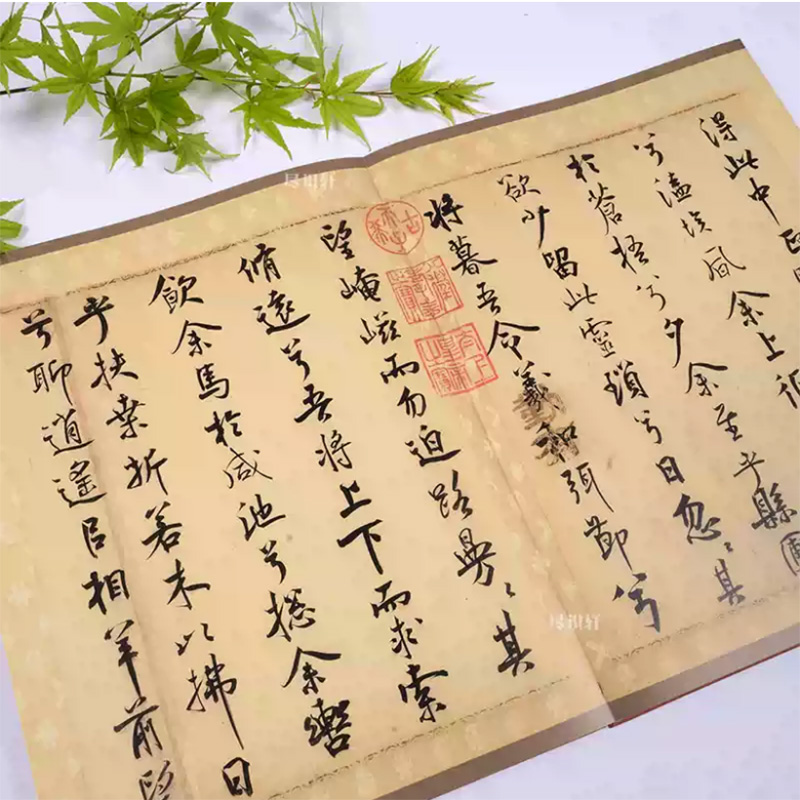 得此中正
兮溘埃風余上征
於蒼梧兮夕余至乎縣圃
欲少留此靈瑣兮日忽〻其
將暮吾令羲和弭節兮
望崦嵫而勿迫路曼〻其
脩遠兮吾將上下而求索
飲余馬於咸池兮揔余轡
乎扶桒折若木以拂日
兮聊逍遙以相羊前望